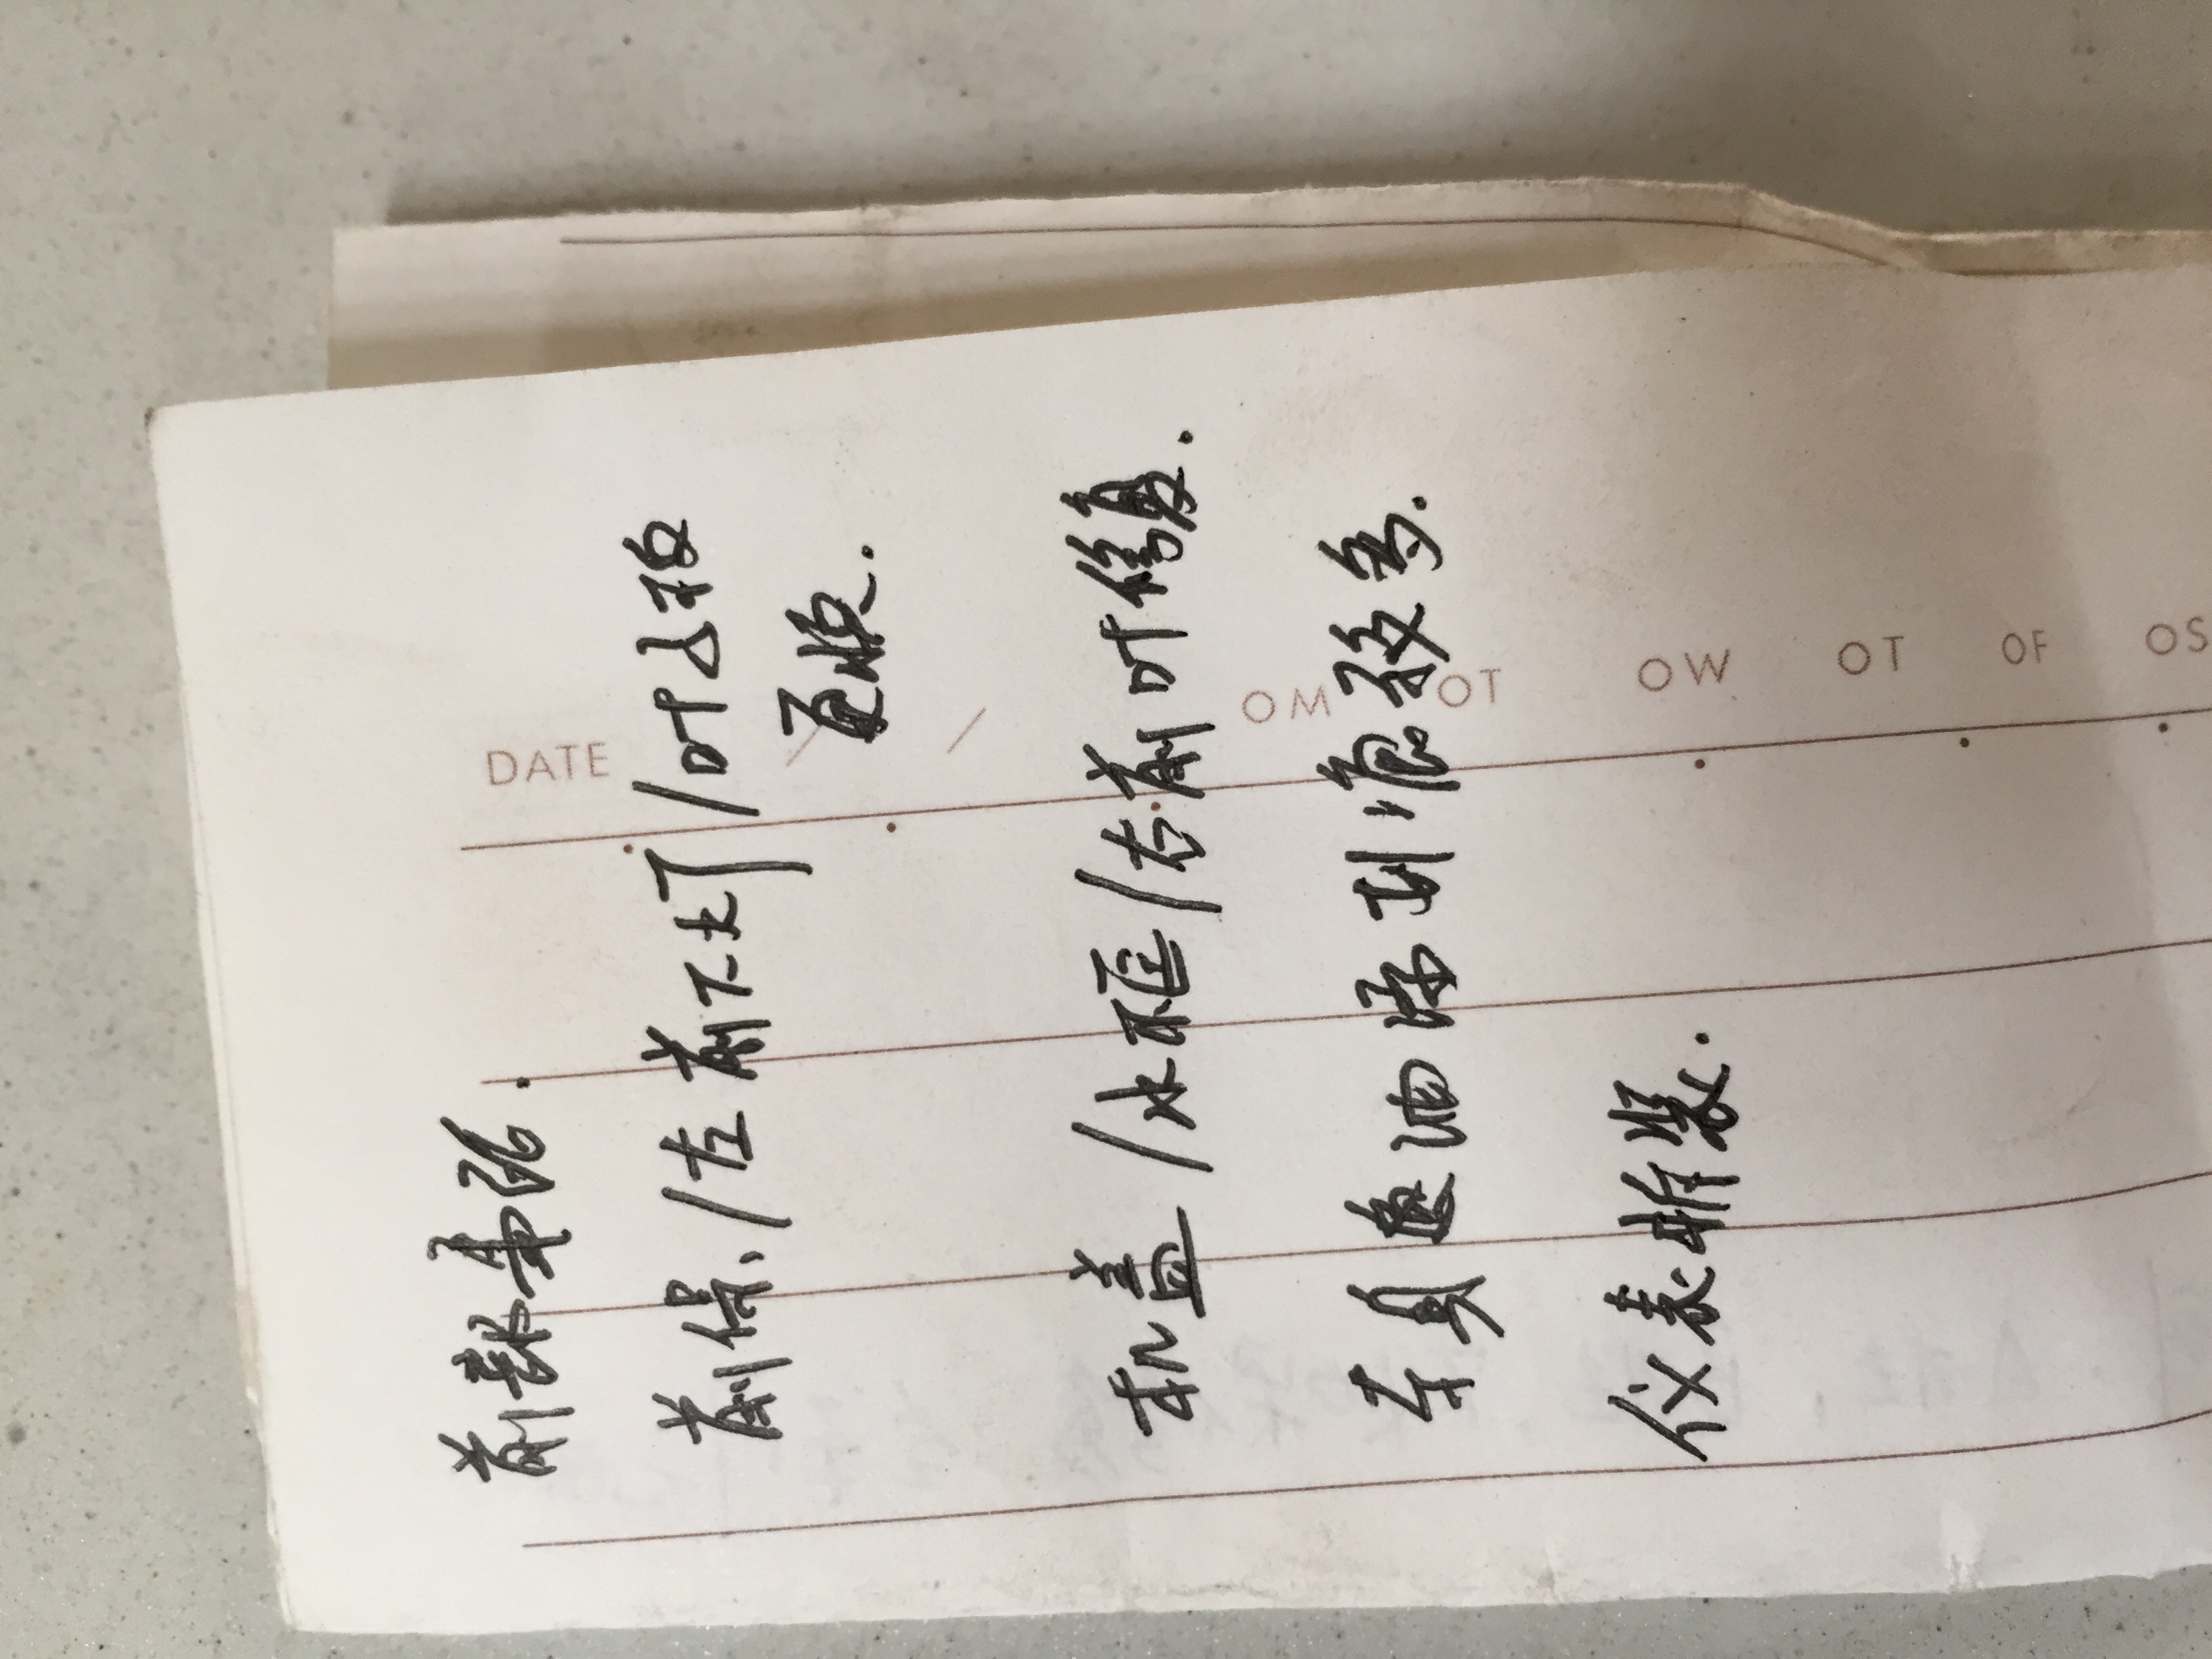 前部事故.
前保、/左前大灯/叶子板
更换.
机盖/水框/右前叶修复.
车身漆油漆刮痕较多.
仪表拆装.
DATE
MO
TO
WO
TO
FO
SO